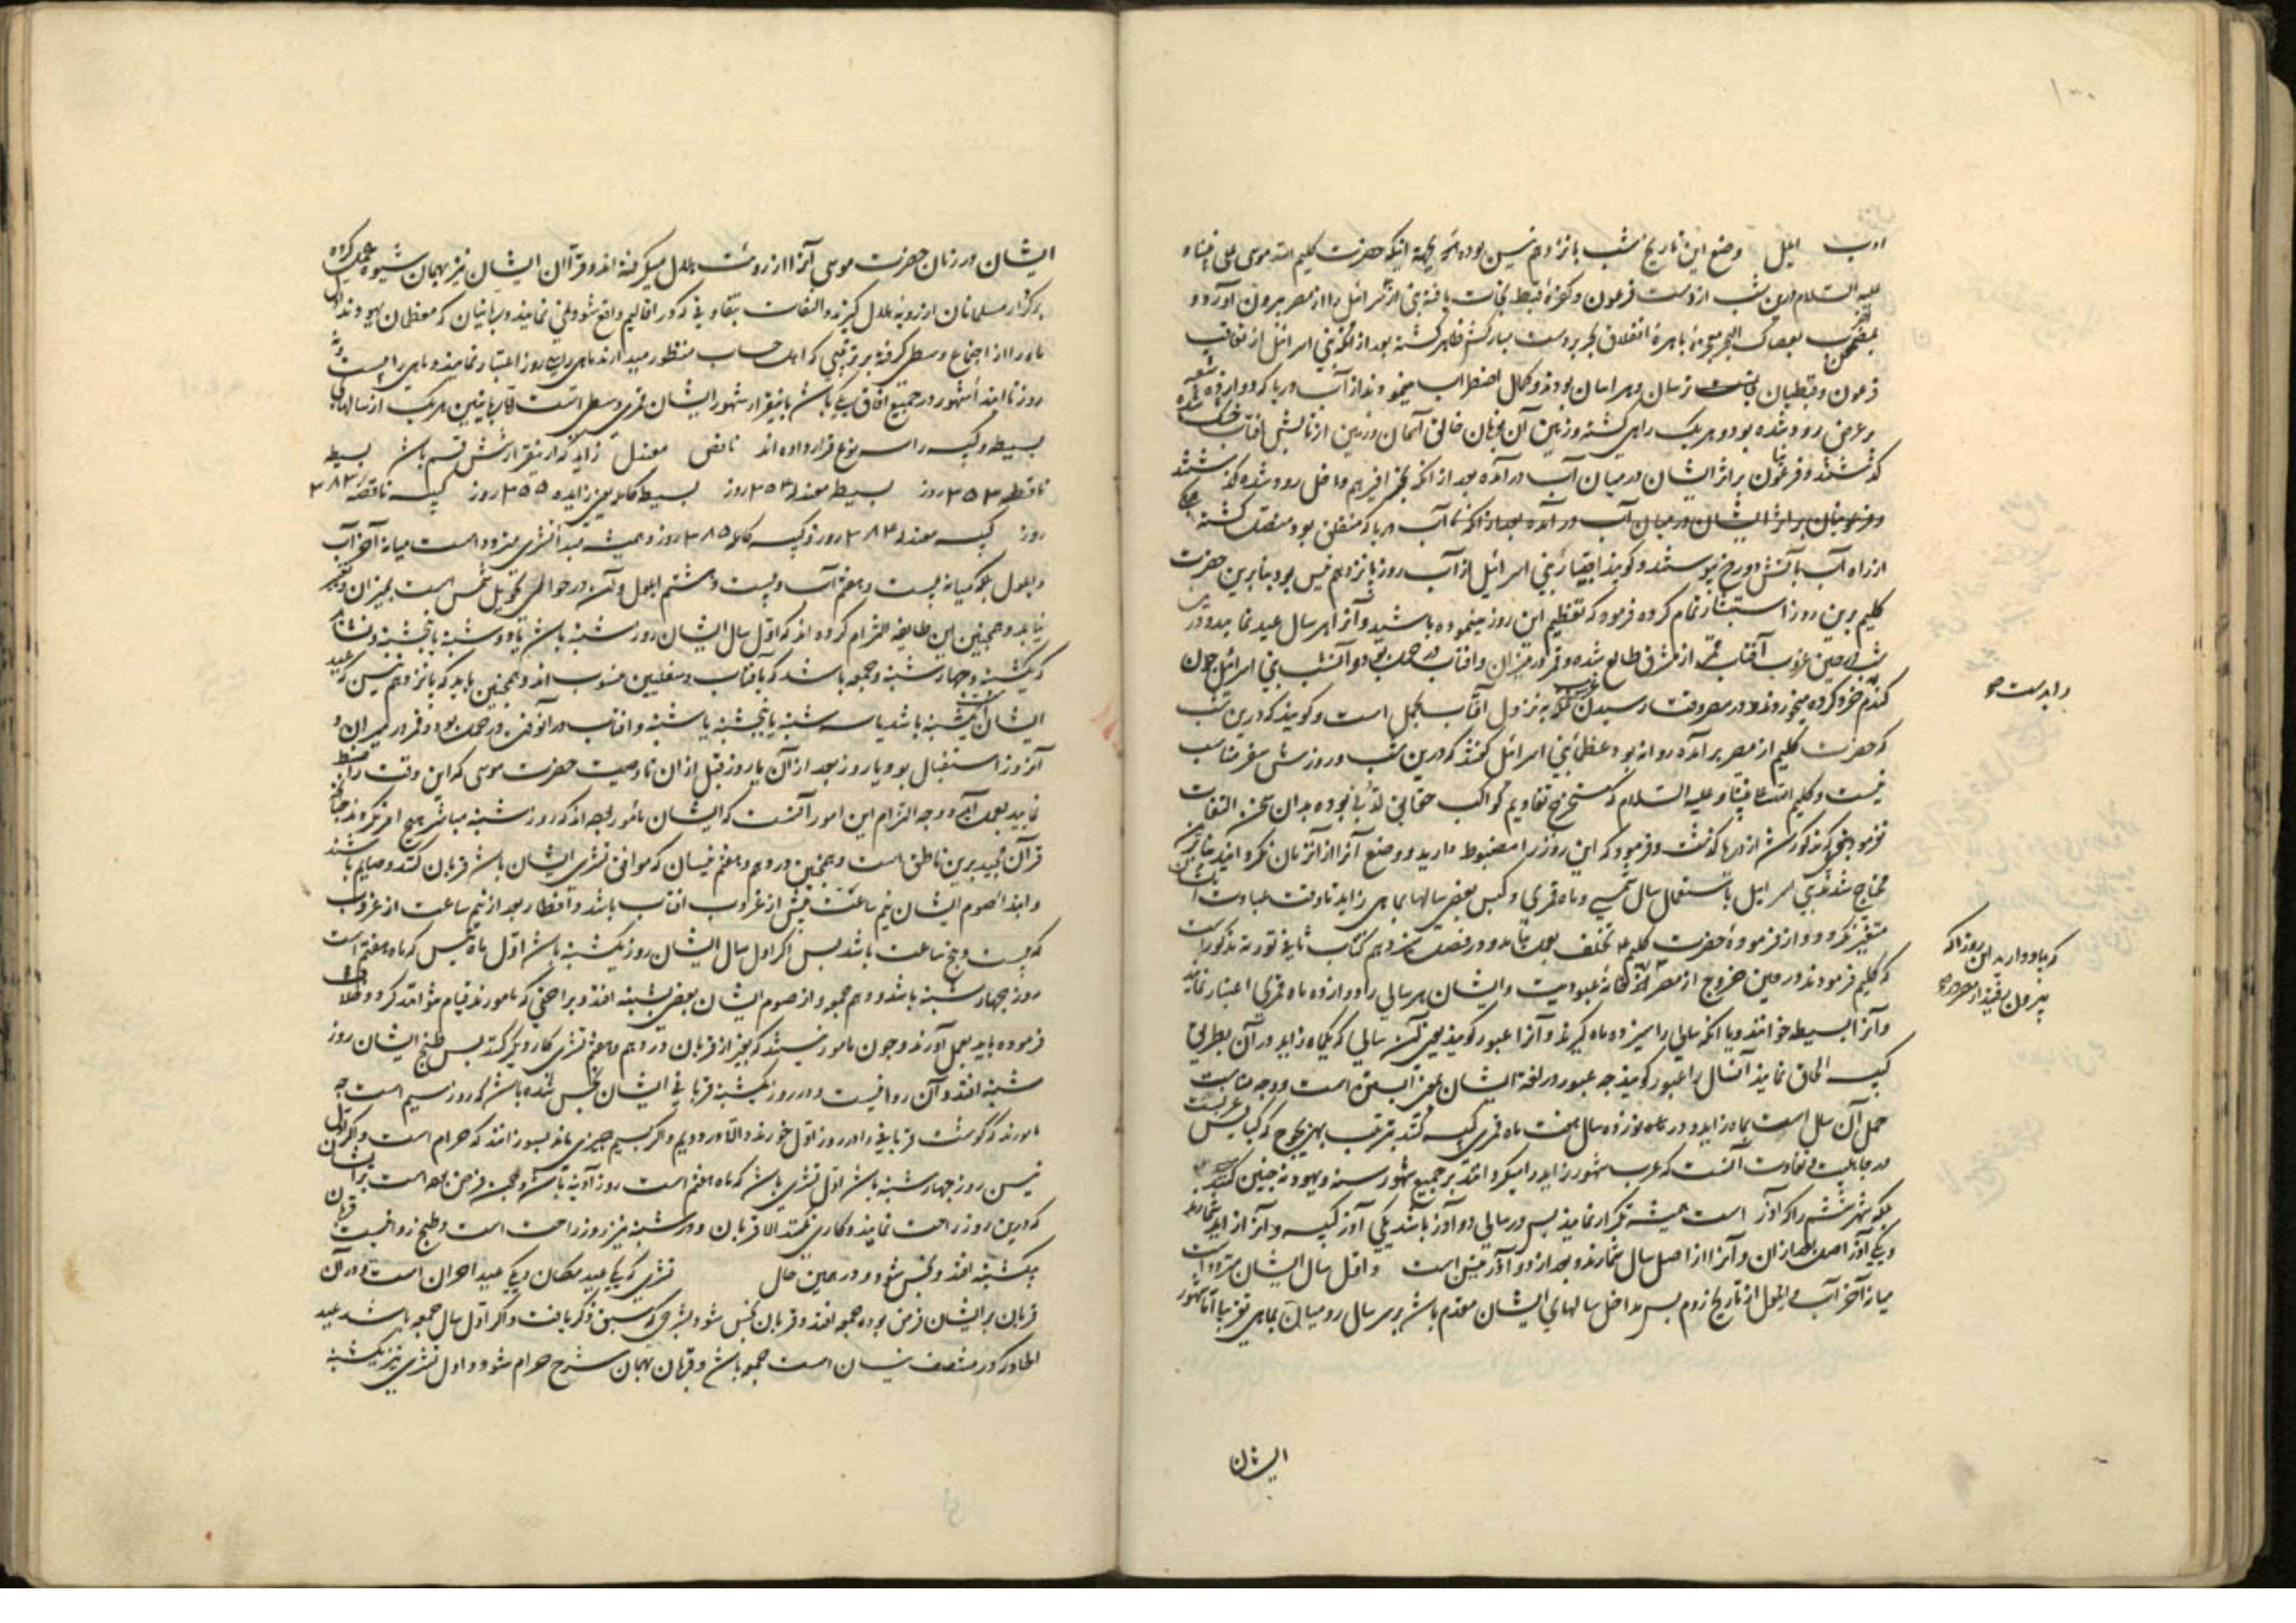 ۱۰۰
اوب ایلل وضع این تاریخ شب پانزدهم نیسن بوده بجهة اینکه حضرت کلیم الله موسی علی نبینا و
علیه السلام درین شب از دست فرعون و کفرهٔ قبط نجات یافته بنی اسرائیل را از مصر برون آورد و
بعصاک البحر معجزه باهرهٔ انفلاق بحر بر دست مبارکش ظاهر گشته بعد از آنکه بنی اسرائیل از تعاقب
فرعون و قبطیان ترسان و هراسان بودند و کمال اضطراب مینمودند از آب دریا که دوازده
و عرض رود شده بود و هر یک راهی گشته و زمین آن بفرمان خالق آسمان و زمین از تابش آفتاب خشک شده
گذشتند و فرعون بر اثر ایشان در میان آب درآمده بعد از آنکه داخل رود شده
و فرعونیان بر اثر ایشان در میان آب درآمده بعد از آنکه آب دریا که منفلق بود متصل گشته
از راه آب بآتش دوزخ پیوستند و گویند بنی اسرائیل از آب روز پانزدهم نیسن بود بنابرین حضرت
کلیم برین روز استبشار تمام کرده فرمود که تعظیم این روز مینموده باشید و آنرا هر سال عید نمایید و در
شب در حین غروب آفتاب قمر از مشرق طالع شده و قمر در میزان و آفتاب در حمل بود و آنشب بنی اسرائیل چون
گندم خرد کرده میخوردند در معروفست رسیدن بنزول آفتاب بحمل است و گویند که درین شب
که حضرت کلیم از مصر برآمده روانه بود عظمای بنی اسرائیل گفتند که درین شب و روز سفر مناسب
نیست و کلیم الله علی نبینا و علیه السلام که مستخرج تقاویم کواکب حقایق بوده بدان سخن التفات
نفرمود از دریا گذشت و فرمود که این روز را مضبوط دارید و وضع آنرا از آن زمان کردند بنابرین
محتاج شدند بنی اسرائیل باستعمال سال شمسی و ماه قمری و کبس بعضی سالها بماهی زاید تا وقت عبادت ایشان
متغیر نگردد و از فرمودهٔ حضرت کلیم تخلف و در فصل سیزدهم کتاب ثانی توریة مذکورست
که کلیم فرمودند در حین خروج از مصر خانهٔ عبودیت و ایشان هر سالی را دوازده ماه قمری اعتبار نمایند
و آنرا بسیطه خوانند و یا آنکه سالی را سیزده ماه گیرند و آنرا عبور گویند یعنی سالی که یکماه زاید در آن بطریق
کبیسه الحاق نمایند آنسال را عبور گویند چه عبور در لغة ایشان بمعنی آبستن است و وجه مناسبت
حمل آن سال است بماه زاید و در نوزده سال هفت ماه قمری کبیسه کنند بترتیب بهزیجوح که کبایس عربست
در جاهلیت تفاوت آنست که عرب شهور زاید را میگردانند بر جمیع شهور سنه و یهود نه چنین کنند
بلکه شهر ششم را که آذر است همیشه تکرار نمایند پس در سالی دو آذر باشد یکی آذر کبیسه و آنرا زاید شمارند
و یکی آذر اصل و آنرا از اصل سال شمارند و بعد از دو آذار نیسن است و اول سال ایشان متردد است
میانه آخر آب و ایلول از تاریخ روم پس مداخل سالهای ایشان مقدم باشد بر سال رومیان بماهی تقریبا اما شهور
ایشان
را بدست صح
که یاد دارید این روز را که
بیرون رفتید از مصر صح
ایشان در زمان حضرت موسی آنرا از رویت هلال میگرفته‌اند و قرآان ایشان نیز بهمان شیوه عمل کرده
بر کردار مسلمانان از رویة هلال گیرند و التفات بتفاوتی که در اقالیم واقع شود نمی‌نمایند و ربانیان که معظمان یهودند اول
ماه را از اجتماع وسطی گرفته بر ترتیبی که اهل حساب منظور میدارند ماهی را سی روز اعتبار نمایند و ماهی را بیست و نه
روز تا ابتداء شهور در جمیع آفاق یکی باشد باینقرار شهور ایشان قمری وسطی است و ربانیین هر یک از سالهای
بسیطه و کبیسه را سه نوع قرار داده‌اند ناقص معتدل زاید که باینقرار شش قسم باشد بسیطه
ناقصه ۳۵۳ روز بسیطه معتدله ۳۵۴ روز بسیطه کامله یعنی زایده ۳۵۵ روز کبیسه ناقصه ۳۸۳
روز کبیسه معتدله ۳۸۴ روز و کبیسه کامله ۳۸۵ روز و همیشه مبدأ تشری متردد است میانه آخر آب
و ایلول بلکه میانه بیست و هفتم آب و بیست و هشتم ایلول و آن در حوالی تحویل شمس است بمیزان و تغییر
نیابد و همچنین این طایفه التزام کرده‌اند که اول سال ایشان روز شنبه باشد یا دوشنبه یا پنجشنبه و نشاید
که یکشنبه و چهارشنبه و جمعه باشد که بآفتاب و سفلیین منسوب‌اند و همچنین باید که پانزدهم نیسن که عید
ایشانست یکشنبه باشد یا سه شنبه یا پنجشنبه یا شنبه و آفتاب در آنوقت در حمل بود و قمر در میزان و
آنروز استقبال بود یا روز بعد از آن یا روز قبل از آن تا وصیت حضرت موسی که این وقت را ضبط
نمایید بعمل آید و وجه التزام این امور آنست که ایشان مأمور بوده‌اند که روز شنبه مباشر هیچ امر نگردند چنانکه
قرآن مجید برین ناطق است و همچنین در دهم و هفتم نیسان که موافق تشری ایشان باشد قربان کنند و صایم باشند
و ابتداء صوم ایشان نیم ساعت پیش از غروب آفتاب باشد و افطار بعد از نیم ساعت از غروب
که بیست و پنج ساعت باشد پس اگر اول سال ایشان روز یکشنبه باشد اول ماه نیسن که ماه هفتم است
روز چهارشنبه باشد و دهم جمعه و از صوم ایشان بعضی بشنبه افتد و براحتی که مأمورند قیام نتوانند کرد
فرموده باید بعمل آورند و چون مأمور نیستند که بغیر از قربان در دهم و هفتم تشری کار دیگر کنند پس طبخ ایشان روز
شنبه افتد و آن روا نیست و در روز یکشنبه قربانی ایشان نجس شده باشد که روز سیم است چه
مأمورند که گوشت قربانی را در روز اول خورند و الا در دویم و اگر بسیم چیزی ماند بسوزانند که حرام است و اگر اول
نیسن روز چهارشنبه باشد اول تشری باشد که ماه هفتم است روز آدینه باشد و همچنین فرض بوده است بر ایشان
که درین روز راحت نمایند و کاری نکنند الا قربان و در شنبه نیز روز راحت است و طبخ روا نیست قربان
یکشنبه افتد و نجس شود و در همین حال تشری که یکی عید مطال و یکی عید احزان است و در آن
قربان بر ایشان فرض بوده جمعه افتد و قربان نجس شود بشرحی که سبق ذکر یافت و اگر اول سال جمعه باشد عید
که در منتصف نیسان است جمعه باشد و قربان بهمان شرح حرام شود و اول تشری نیز یکشنبه